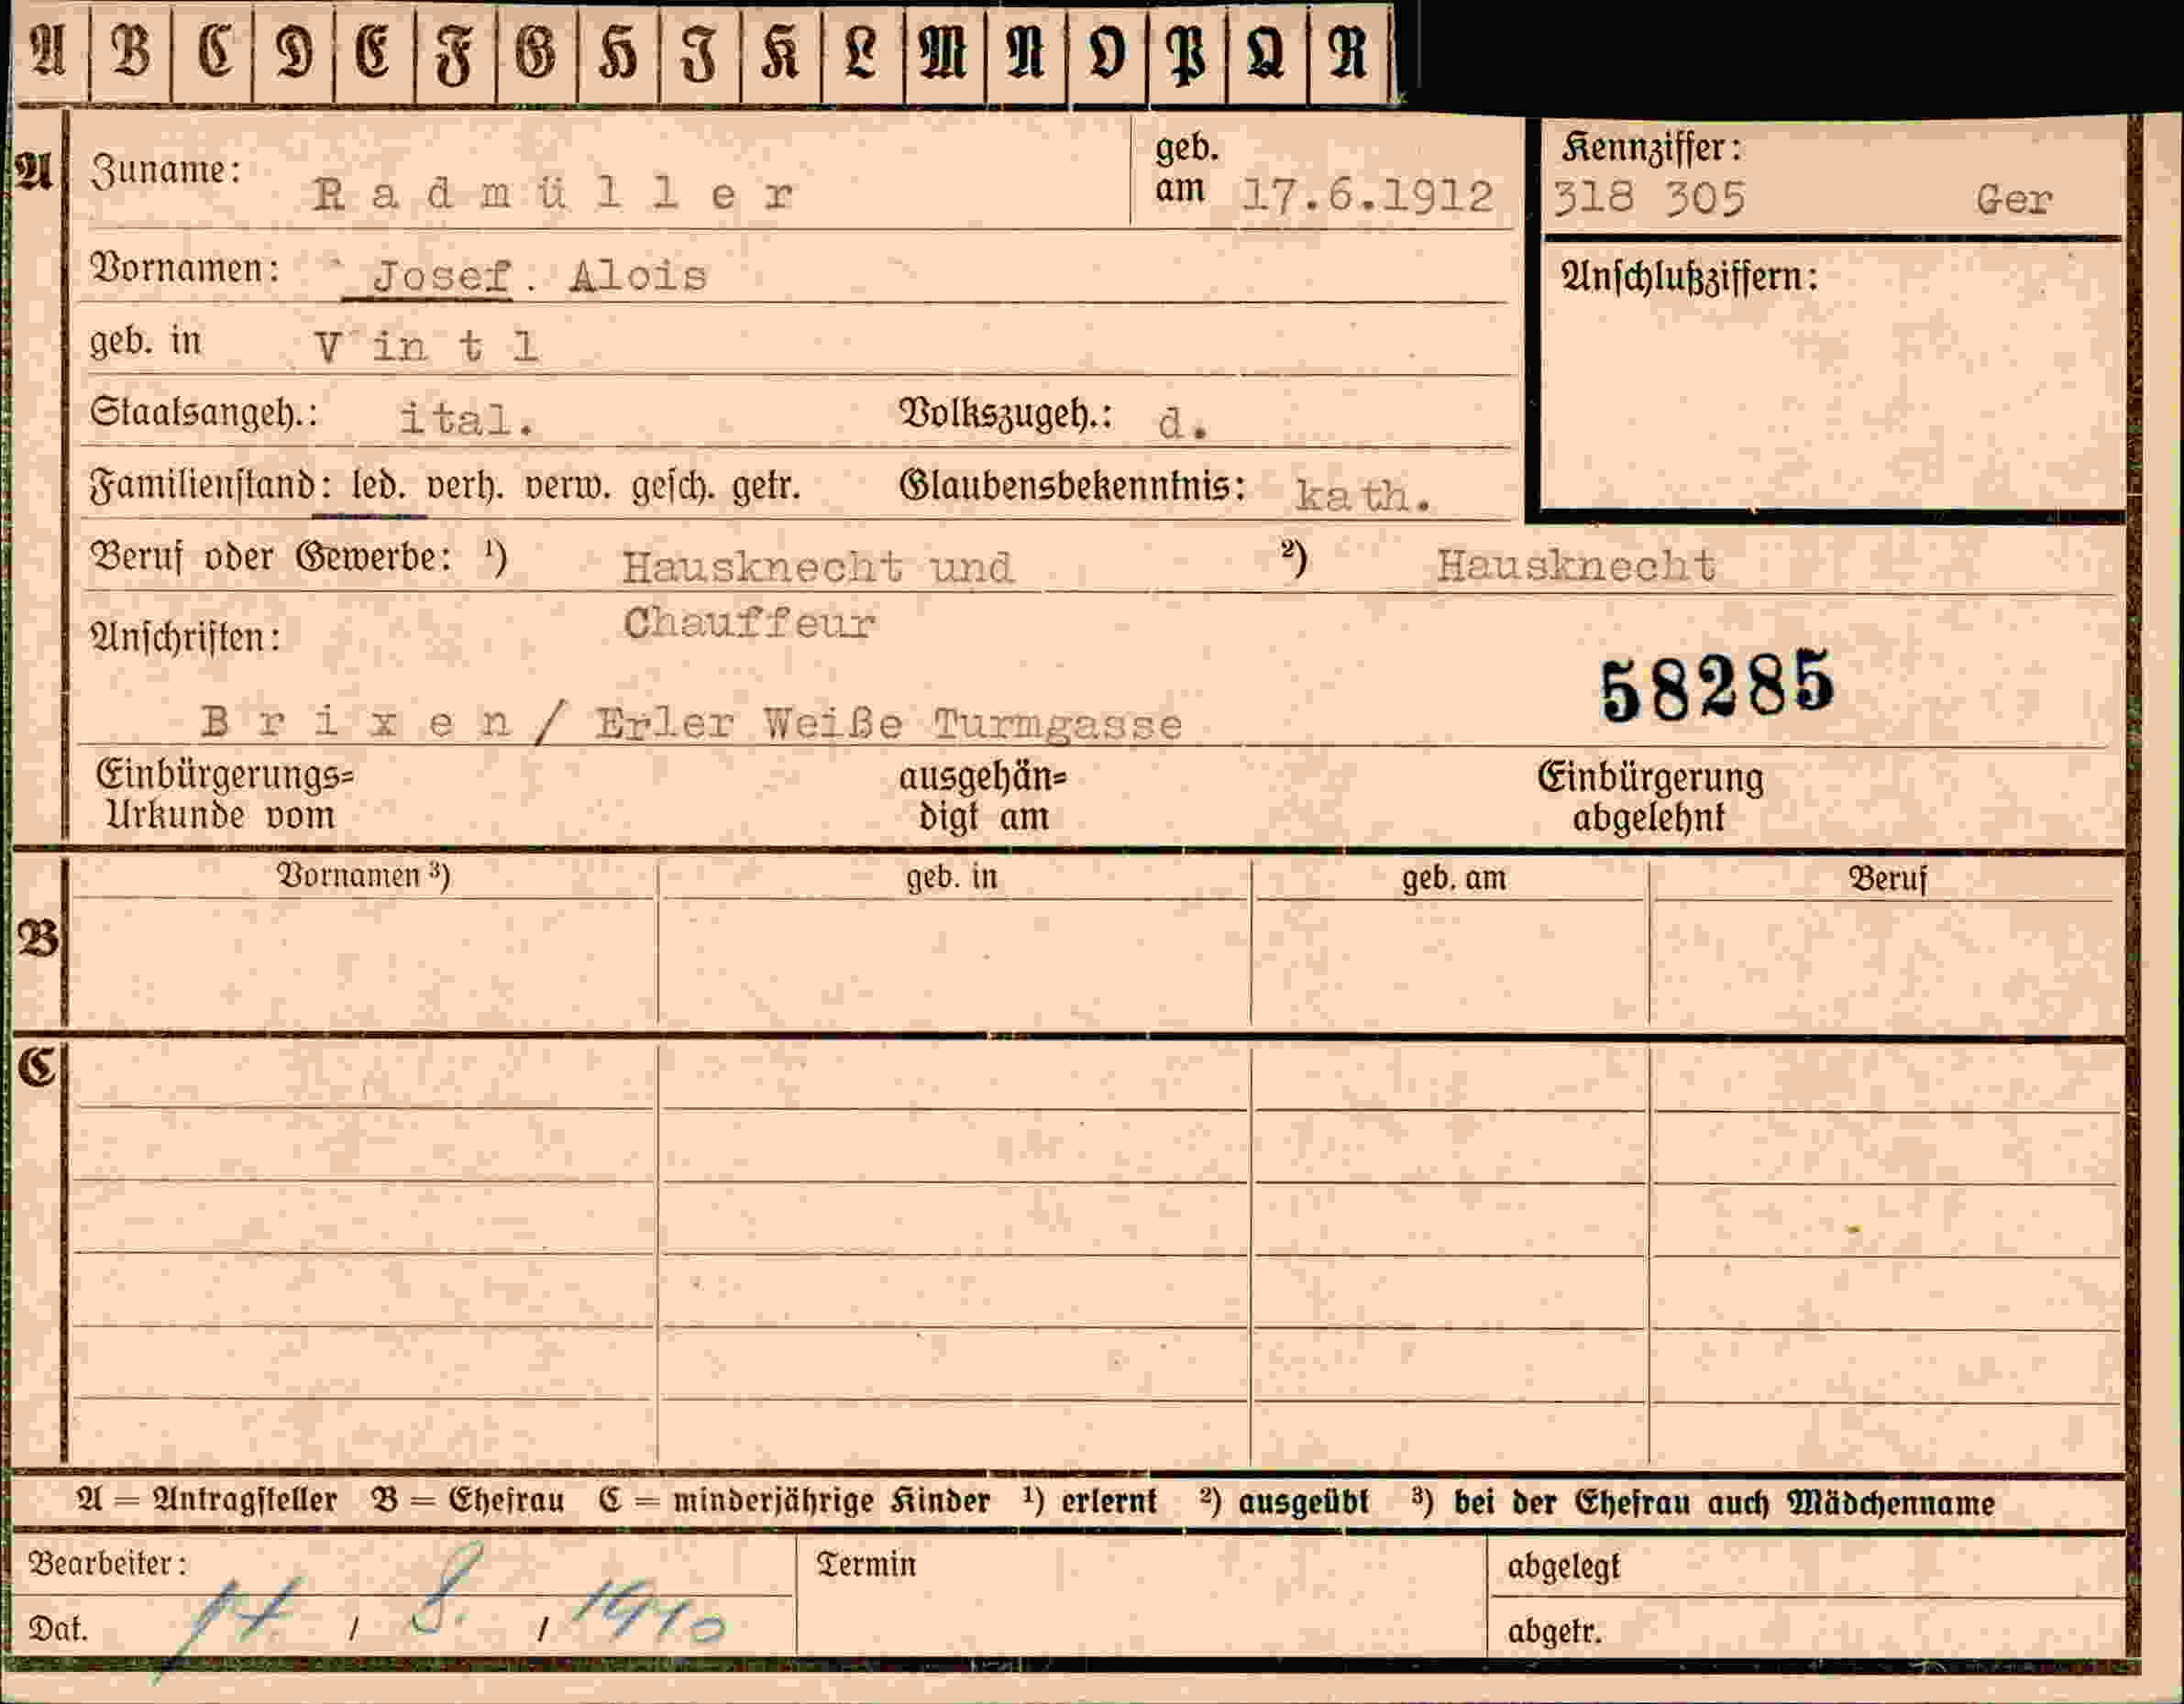 A B C D E F G H I K L M N O P Q R
A Zuname: Radmüller geb. am 17.6.1912 Kennziffer: 318 305 Ger
Vornamen: Josef. Alois Anschlußziffern:
geb. in Vintl
Staatsangeh.: ital. Volkszugeh.: d.
Familienstand: led. verh. verw. gesch. getr. Glaubensbekenntnis: kath.
Beruf oder Gewerbe: ¹) Hausknecht und ²) Hausknecht
Chauffeur
Anschriften:
58285
Brixen/ Erler Weiße Turmgasse
Einbürgerungs= ausgehän= Einbürgerung
Urkunde vom digt am abgelehnt
Vornamen ³) geb. in geb. am Beruf
B
C
A = Antragsteller B = Ehefrau C = minderjährige Kinder ¹) erlernt ²) ausgeübt ³) bei der Ehefrau auch Mädchenname
Bearbeiter: Termin abgelegt
Dat. / 8. / 1940 abgetr.